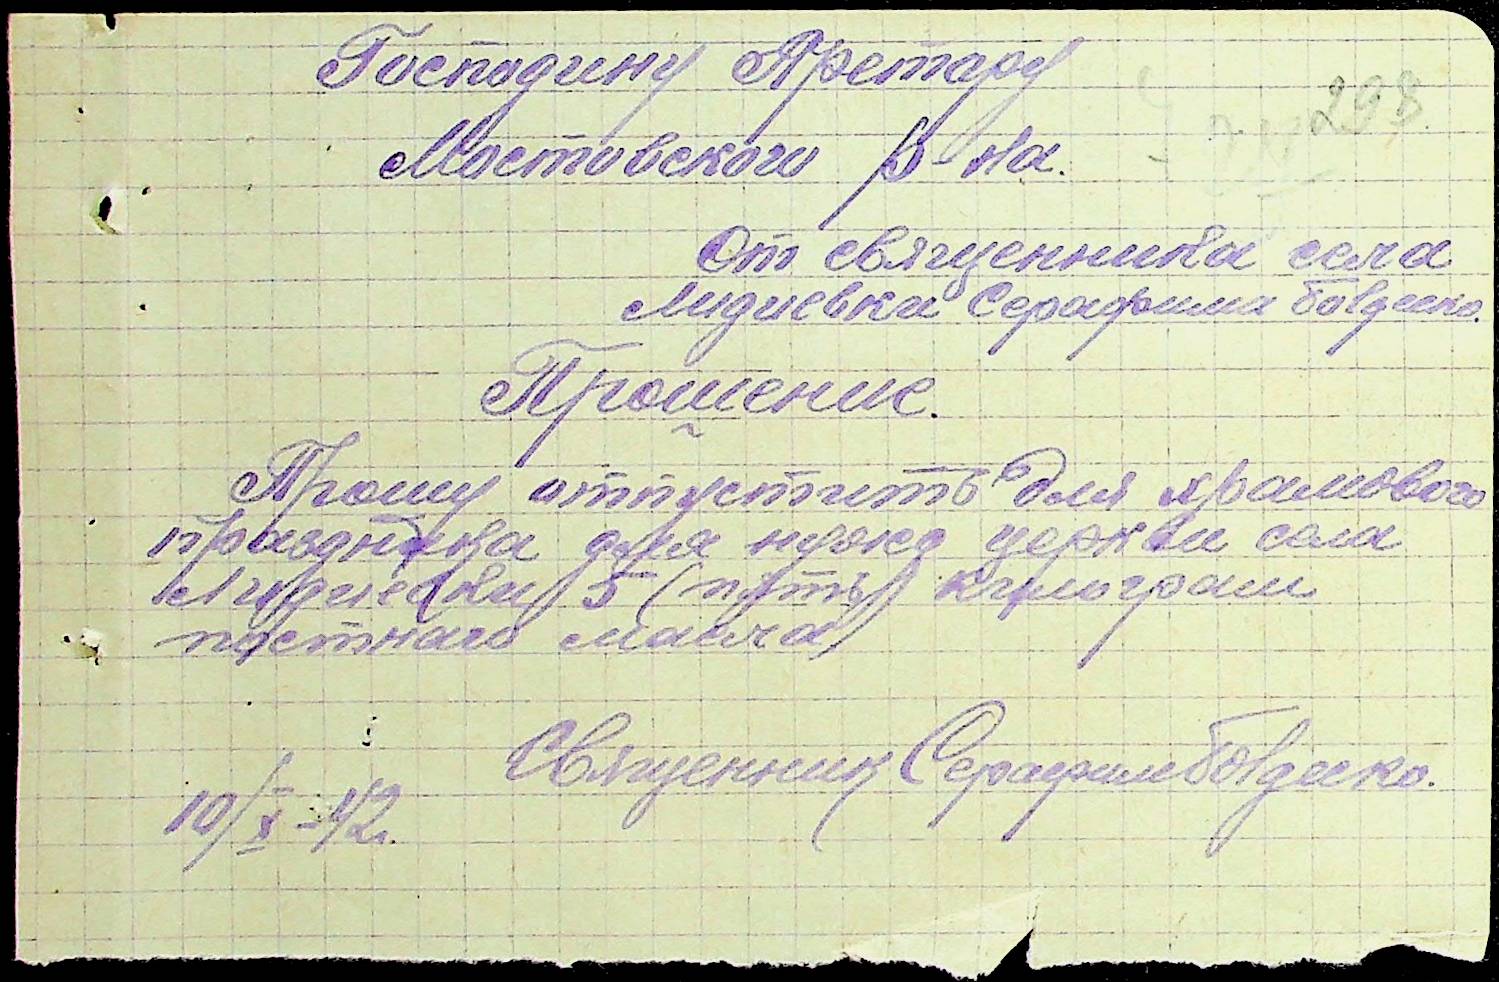 Господину Претару
298
Мостовского р-на.
От священника села
Лидиевки Серафима Бовдыко.
Прошение.
Прошу отпустить для храмового
праздника для нужд церкви села
Лидиевки 5 (пять) килограм
постнаго масла
Священник Серафим
10/X-42.